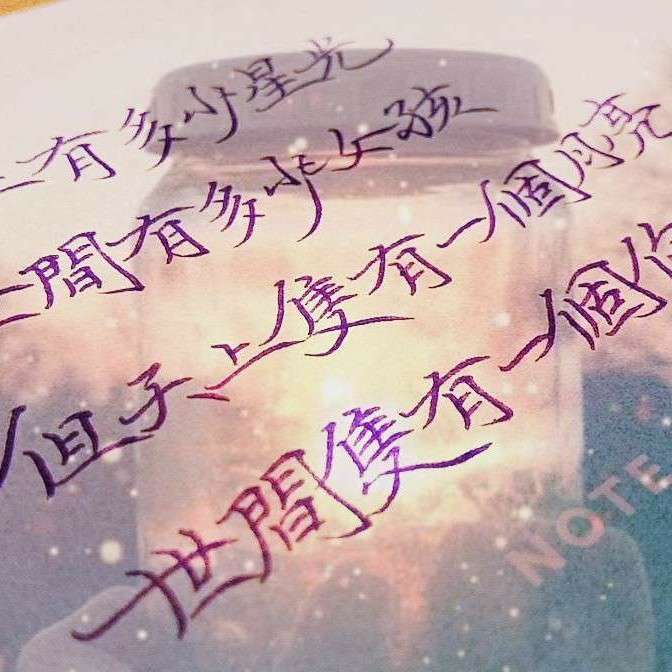 上有多少星光
間有多少女孩
但天上隻有一個月亮
世間隻有一個你
NOTE